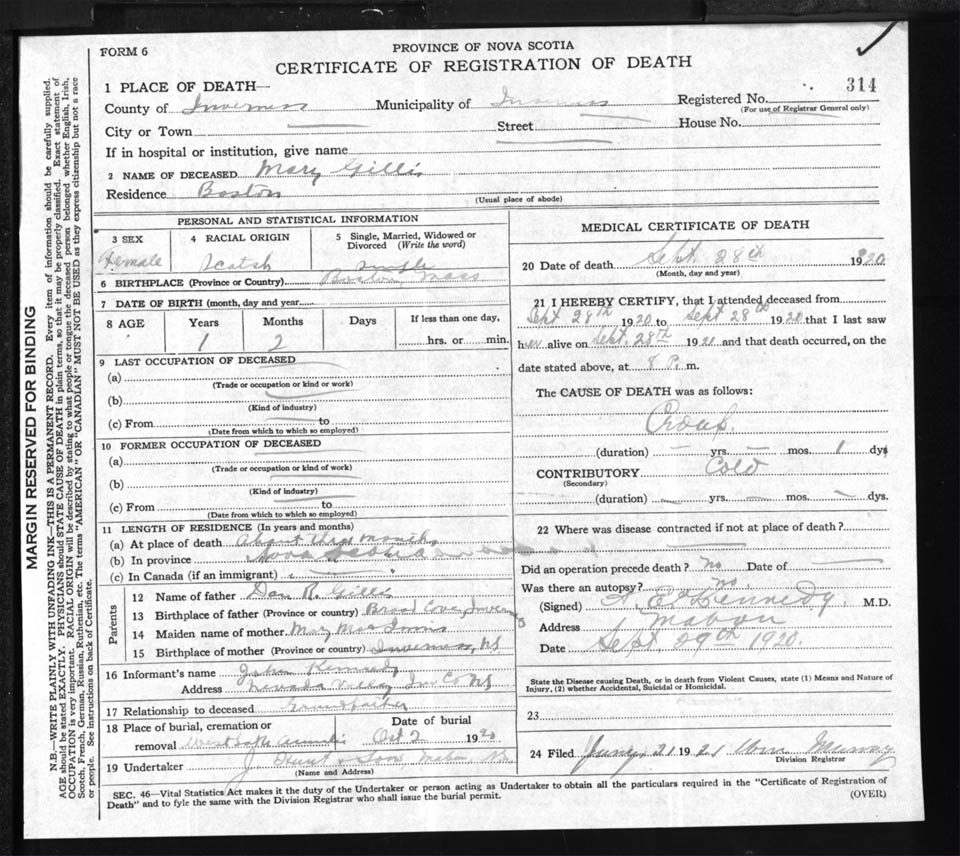 FORM 6
PROVINCE OF NOVA SCOTIA
CERTIFICATE OF REGISTRATION OF DEATH
1 PLACE OF DEATH—
314
County of Inverness Municipality of Inverness Registered No.
(For use of Registrar General only)
City or Town Street House No.
If in hospital or institution, give name
2 NAME OF DECEASED Mary Gillis
Residence Boston
(Usual place of abode)
PERSONAL AND STATISTICAL INFORMATION
3 SEX 4 RACIAL ORIGIN 5 Single, Married, Widowed or Divorced (Write the word)
Female Scotch single
6 BIRTHPLACE (Province or Country) Boston, Mass
7 DATE OF BIRTH (month, day and year
8 AGE Years Months Days If less than one day,
1 2 hrs. or min.
9 LAST OCCUPATION OF DECEASED
(a)
(Trade or occupation or kind or work)
(b)
(Kind of industry)
(c) From to
(Date from which to which so employed)
10 FORMER OCCUPATION OF DECEASED
(a)
(Trade or occupation or kind of work)
(b)
(Kind of industry)
(c) From to
(Date from which to which so employed)
11 LENGTH OF RESIDENCE (In years and months)
(a) At place of death About three months
(b) In province Nova Scotia
(c) In Canada (if an immigrant)
Parents
12 Name of father Dan R. Gillis
13 Birthplace of father (Province or country) Broad Cove, Inverness
14 Maiden name of mother Mary MacInnis
15 Birthplace of mother (Province or country) Inverness, NS
16 Informant's name John Kennedy
Address Inv Co NS
17 Relationship to deceased Grandfather
18 Place of burial, cremation or Date of burial
removal West Lake Ainslie Oct 2 1920
19 Undertaker J Hunt & Sons Mabou NS
(Name and Address)
MEDICAL CERTIFICATE OF DEATH
20 Date of death Sept. 28th 1920
(Month, day and year)
21 I HEREBY CERTIFY, that I attended deceased from
Sept 28th 1920 to Sept 28th 1920 that I last saw
her alive on Sept. 28th 1920 and that death occurred, on the
date stated above, at 8 P. m.
The CAUSE OF DEATH was as follows:
Croup.
(duration) yrs. mos. 1 dys
CONTRIBUTORY Cold
(Secondary)
(duration) yrs. mos. dys.
22 Where was disease contracted if not at place of death?
Did an operation precede death? no Date of
Was there an autopsy? no.
(Signed) Kennedy M.D.
Address Mabou
Date Sept. 29th 1920.
State the Disease causing Death, or in death from Violent Causes, state (1) Means and Nature of
Injury, (2) whether Accidental, Suicidal or Homicidal.
23
24 Filed 21 1921 Murray
Division Registrar
SEC. 46—Vital Statistics Act makes it the duty of the Undertaker or person acting as Undertaker to obtain all the particulars required in the "Certificate of Registration of
Death" and to fyle the same with the Division Registrar who shall issue the burial permit. (OVER)
MARGIN RESERVED FOR BINDING
N.B.—WRITE PLAINLY WITH UNFADING INK—THIS IS A PERMANENT RECORD. Every item of information should be carefully supplied.
AGE should be stated EXACTLY. PHYSICIANS should STATE CAUSE OF DEATH in plain terms, so that it may be properly classified. Exact statement of
OCCUPATION is very important. RACIAL ORIGIN will be described by stating to what people or tongue the deceased person belonged whether English, Irish,
Scotch, French, German, Russian, Ruthenian, etc. The terms "AMERICAN" OR "CANADIAN" MUST NOT BE USED as they express citizenship but not a race
or people. See instructions on back of Certificate.